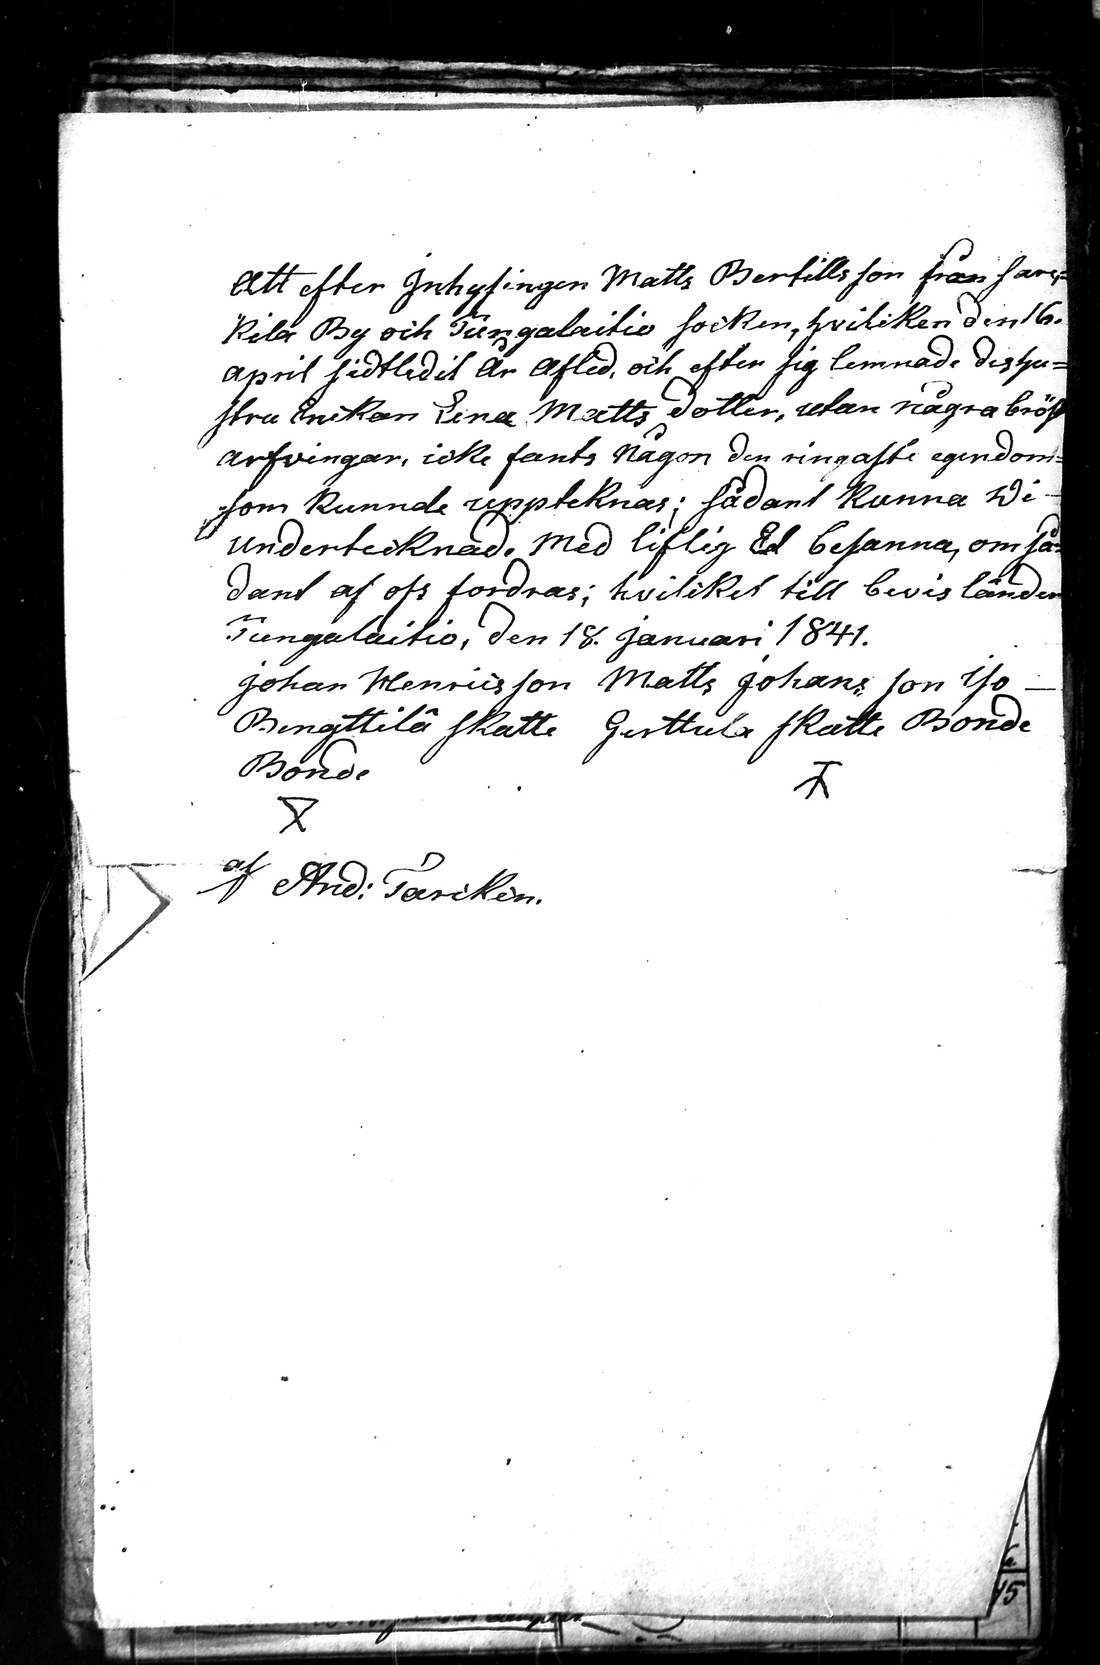 Att efter Jnhysingen Matts Bertillsson från Sare-
kila By och Tungalaitio socken, hviliken den 16.
april sidtledit År afled, och efter sig lemnade deshu-
stru Enckan Lena Matts dotter, utan några bröst
arfvingar, icke fants någon den ringaste egendom-
som kunnde uppteknas; sådant kunna Wi -
undertecknade Med liflig Ed besanna, om så-
dant af oss fordras; hviliket till bevis länder
Tungalaitio, den 18. januari 1841.
johan Henricsson Matts johans son Iso -
Bengttilä skatte Gerttula skatte Bonde
Bonde
af And: Tariken.
45